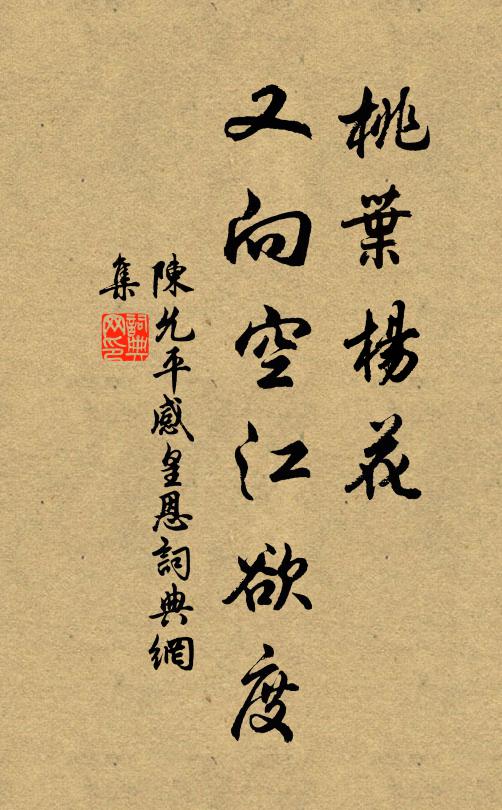 桃葉楊花
又向空江欲度
陳允平感皇恩詞典網
集
詞典网印